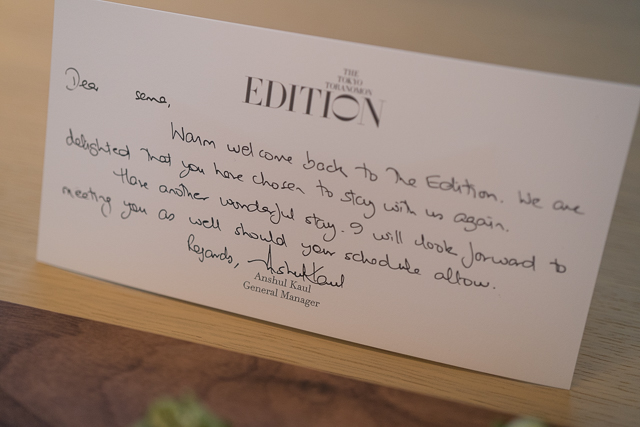 THE
TOKYO
TORANOMON
EDITION
Dear sema,
Warm welcome back to The Edition. We are
delighted that you have chosen to stay with us again.
Have another wonderful stay. I will look forward to
meeting you as well should your schedule allow.
Regards, Anshul Kaul
Anshul Kaul
General Manager